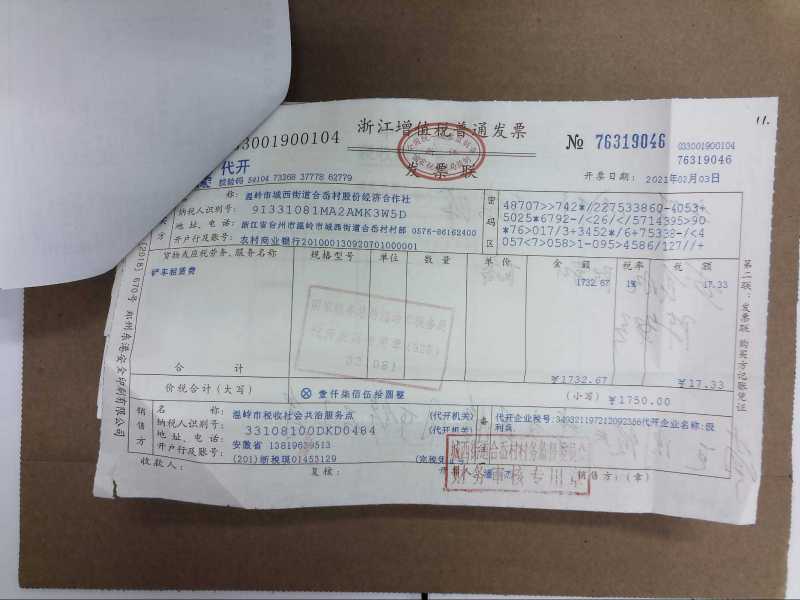 11.
浙江增值税普通发票
发票联
033001900104
№ 76319046
033001900104
76319046
代开
校验码 54104 73368 37778 62779
开票日期： 2021年02月03日
温岭市城西街道合岙村股份经济合作社
纳税人识别号： 91331081MA2AMK3W5D
地 址、电 话： 浙江省台州市温岭市城西街道合岙村村部 0576-86162400
开户行及账号： 农村商业银行201000130920701000001
密码区
48707>>742*/227533860-4053+
5025*6792-/<26/</5714395>90
*76>017/3+3452*/6+75338-/<4
057<7>058>1-095>4586/127//+
货物或应税劳务、服务名称 规格型号 单位 数量 单价 金额 税率 税额
铲车租赁费 1732.67 1% 17.33
合 计 ￥1732.67 ￥17.33
价税合计（大写） ⊗ 壹仟柒佰伍拾圆整 （小写）￥1750.00
销售方
名 称： 温岭市税收社会共治服务点 (代开机关)
纳税人识别号： 33108100DKD0484 (代开机关)
地 址、电话： 安徽省 13819639513
开户行及账号： (201)浙税琪01455129
备
代开企业税号：349321197212092356代开企业名称：段
利兵
收款人：
复核：
销售方：（章）
城西街道合岙村村务监督委员会
财务审核专用章
第二联：发票联 购买方记账凭证